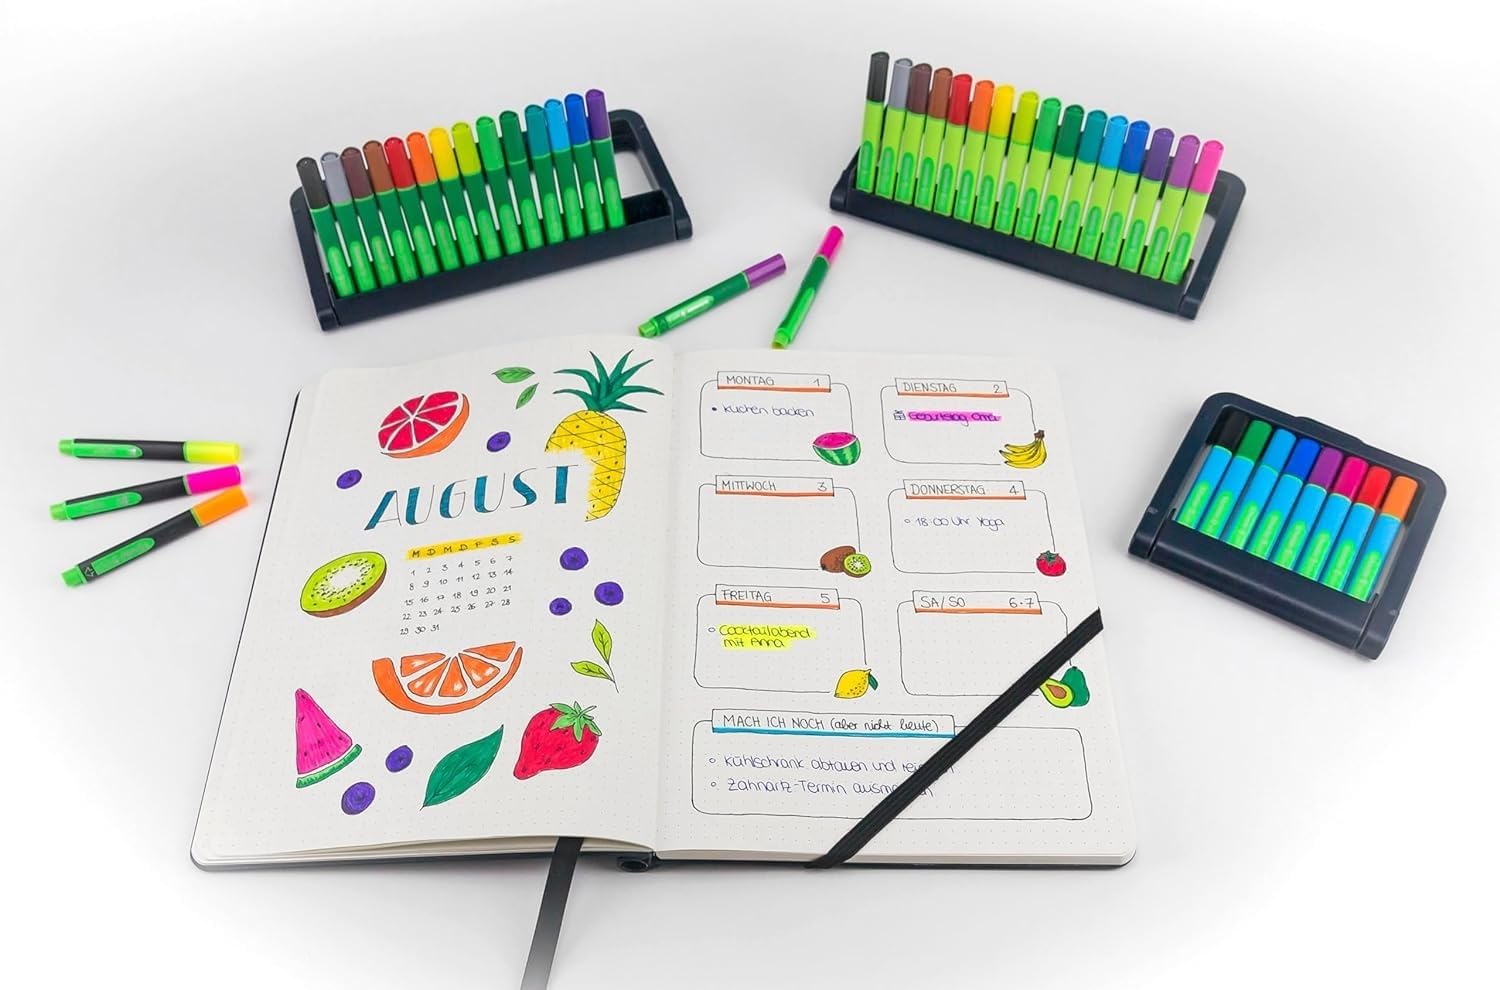 AUGUST
M D M D F S S
1 2 3 4 5 6 7
8 9 10 11 12 13 14
15 16 17 18 19 20 21
22 23 24 25 26 27 28
29 30 31
MONTAG 1
Kuchen backen
DIENSTAG 2
Geburtstag Oma
MITTWOCH 3
DONNERSTAG 4
18:00 Uhr Yoga
FREITAG 5
Cocktailabend
mit Anna
SA/SO 6+7
MACH ICH NOCH (aber nicht heute)
Kühlschrank abtauen und
Zahnartz-Termin